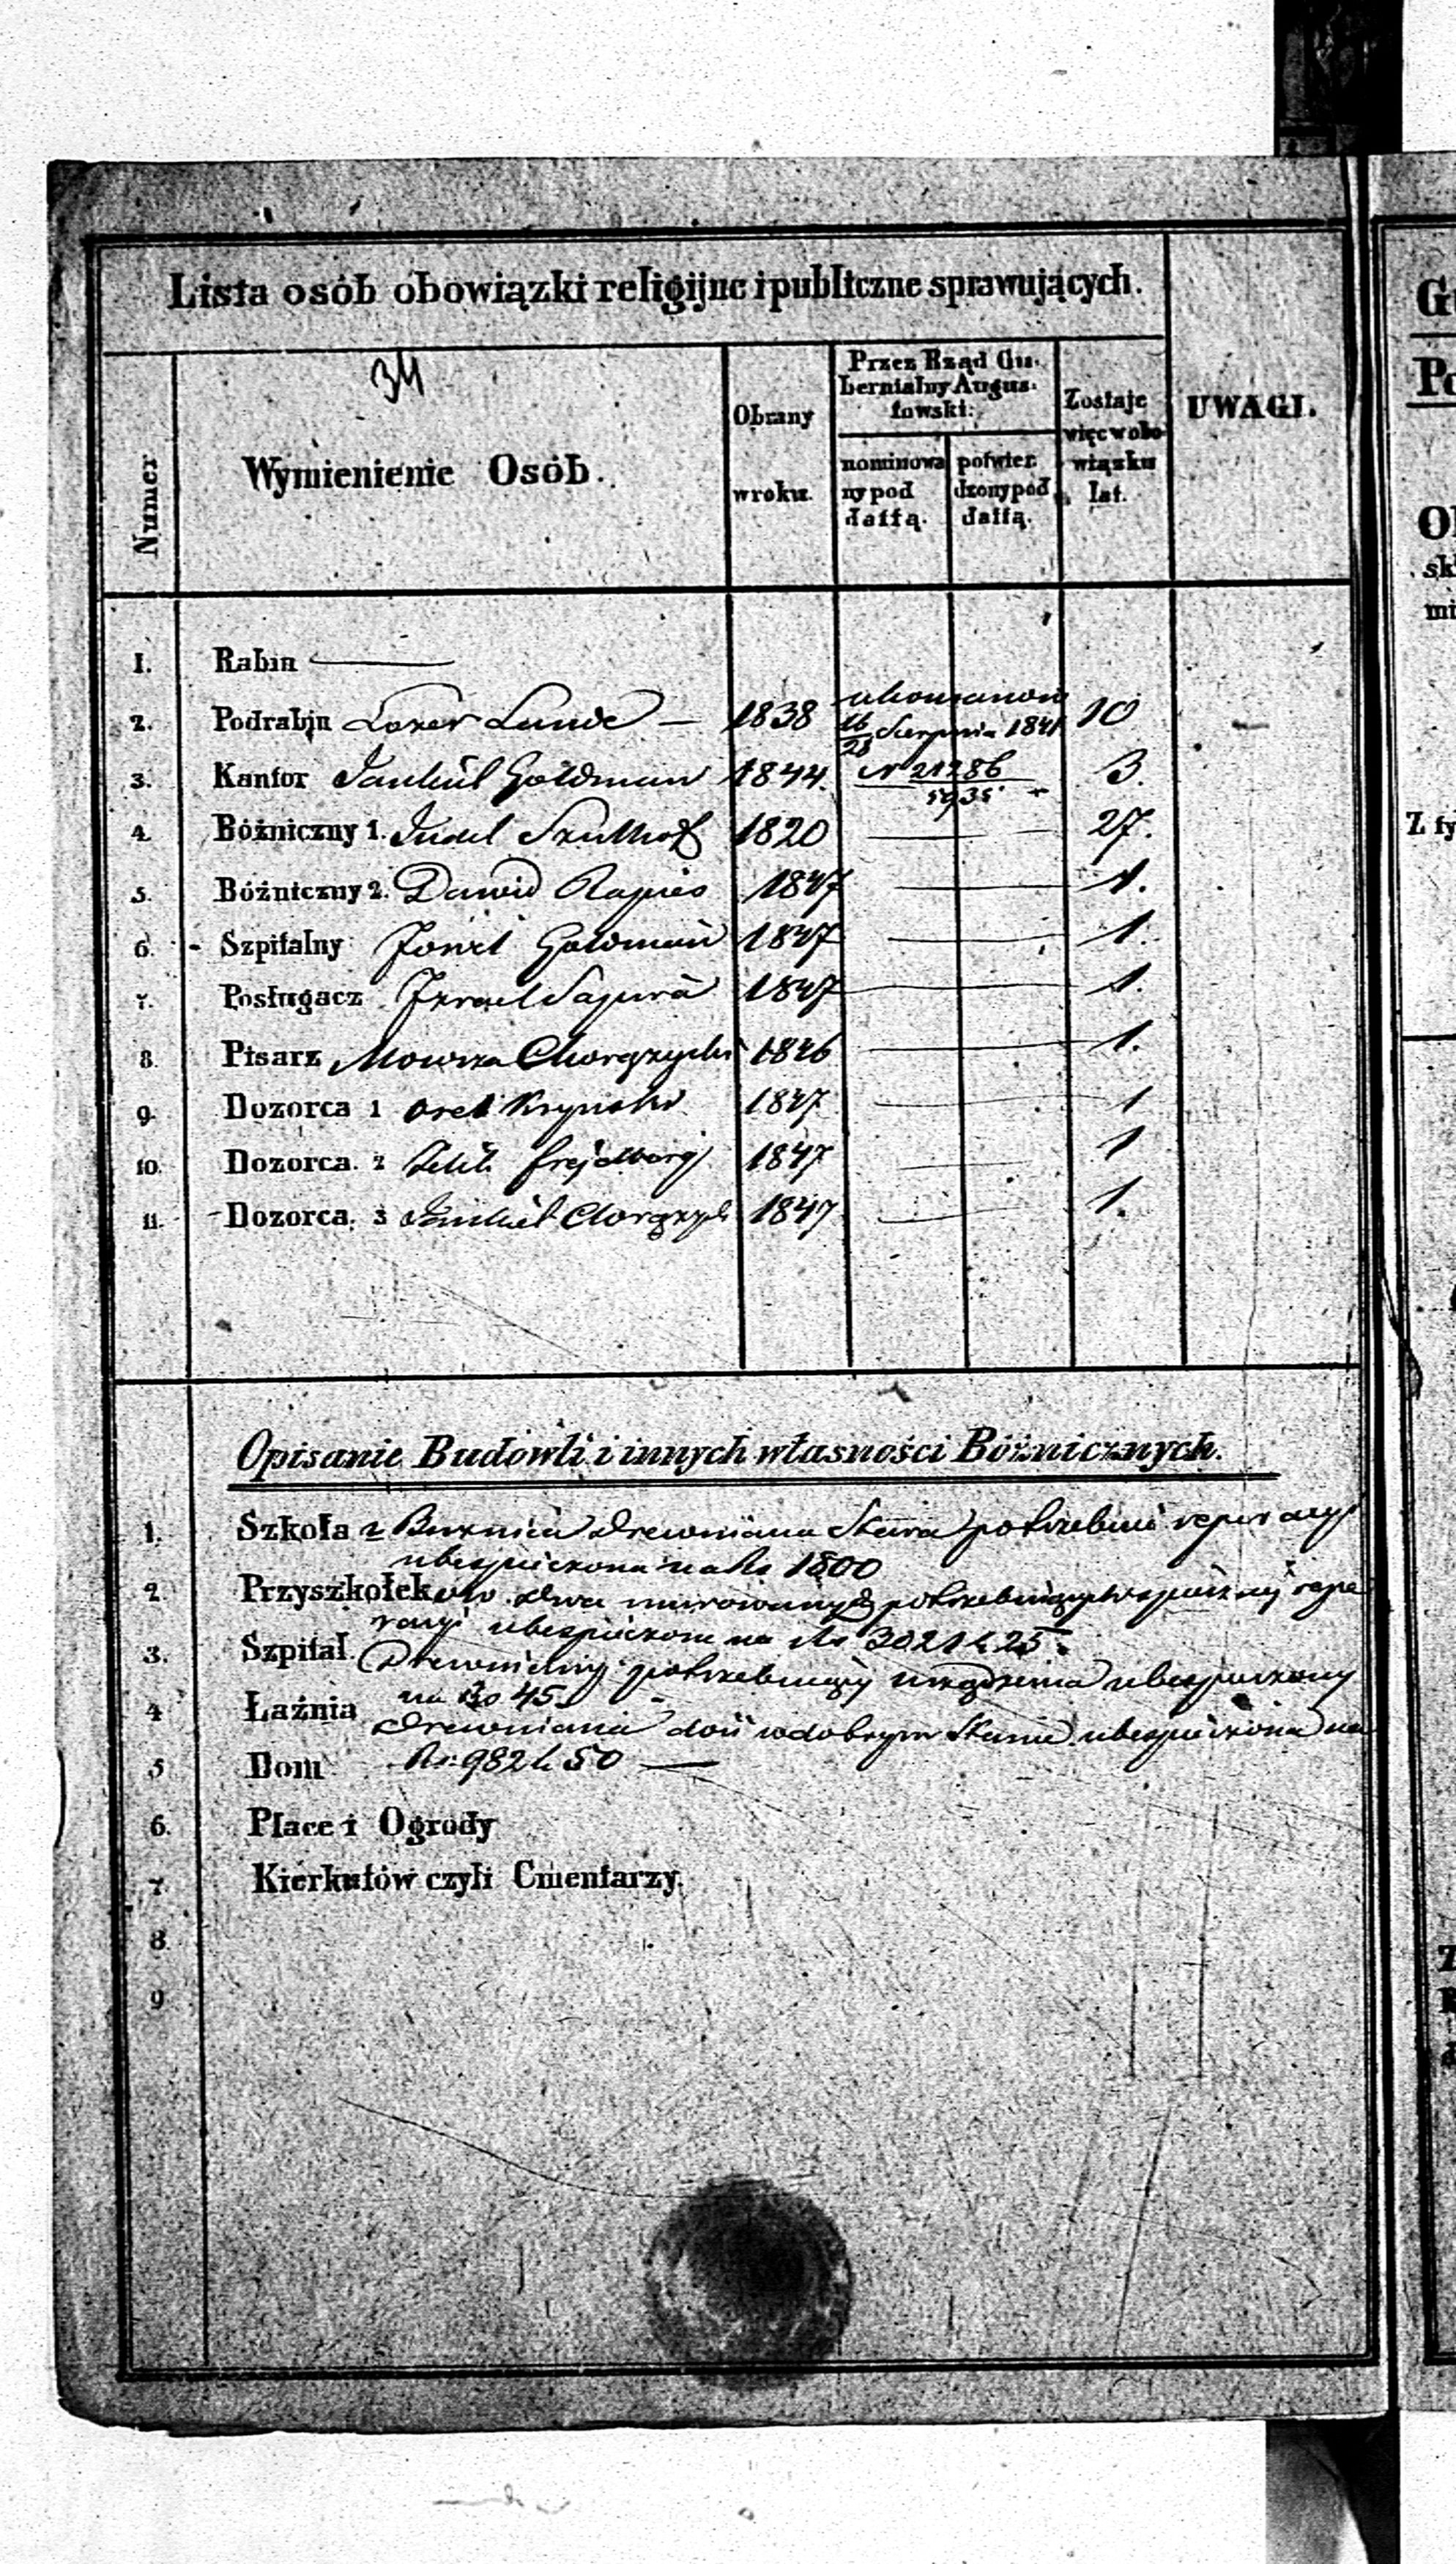 Lista osób obowiązki religijne i publiczne sprawujących.
34
Numer
Wymienienie Osób.
Obrany w roku.
Przez Rząd Gubernialny Augustowski:
nominowany pod dattą.
potwierdzony pod dattą.
Zostaje więc w obowiązku lat.
UWAGI.
1. Rabin —
2. Podrabin Lexer Lunde — 1838 16/28 Sierpnia 1841 10 —
3. Kantor Jankiel Goldman 1844. N 21286/5935 3.
4. Bóżniczny 1. Judel 1820 — 27.
5. Bóżniczny 2. Dawid Rapies 1847 — 1.
6. Szpitalny Josiel Goldman 1847 — 1.
7. Posługacz Izrael Sapira 1847 — 1.
8. Pisarz Mowsza Chorązycki 1846 — 1.
9. Dozorca 1 Orel Krynski 1847 — 1
10. Dozorca. 2 1847 — 1
11. Dozorca. 3 Jankiel 1847 — 1.
Opisanie Budowli i innych własności Bóżnicznych.
1. Szkoła z Drewniana Stara potrzebuie reperacyi
ubespieczona na Rs 1800
2. Przyszkołekow dwa murowanych reperacyi
ubespieczone na Rs 3021 k 25.
3. Szpital Drewniany potrzebuiący urządzenia ubespieczony
na Rs 45
4 Łaźnia Drewniana dość w dobrym Stanie ubespieczona na
Rs. 982 k 50 —
5 Dom
6. Place i Ogrody
7. Kierkutów czyli Cmentarzy.
8.
9